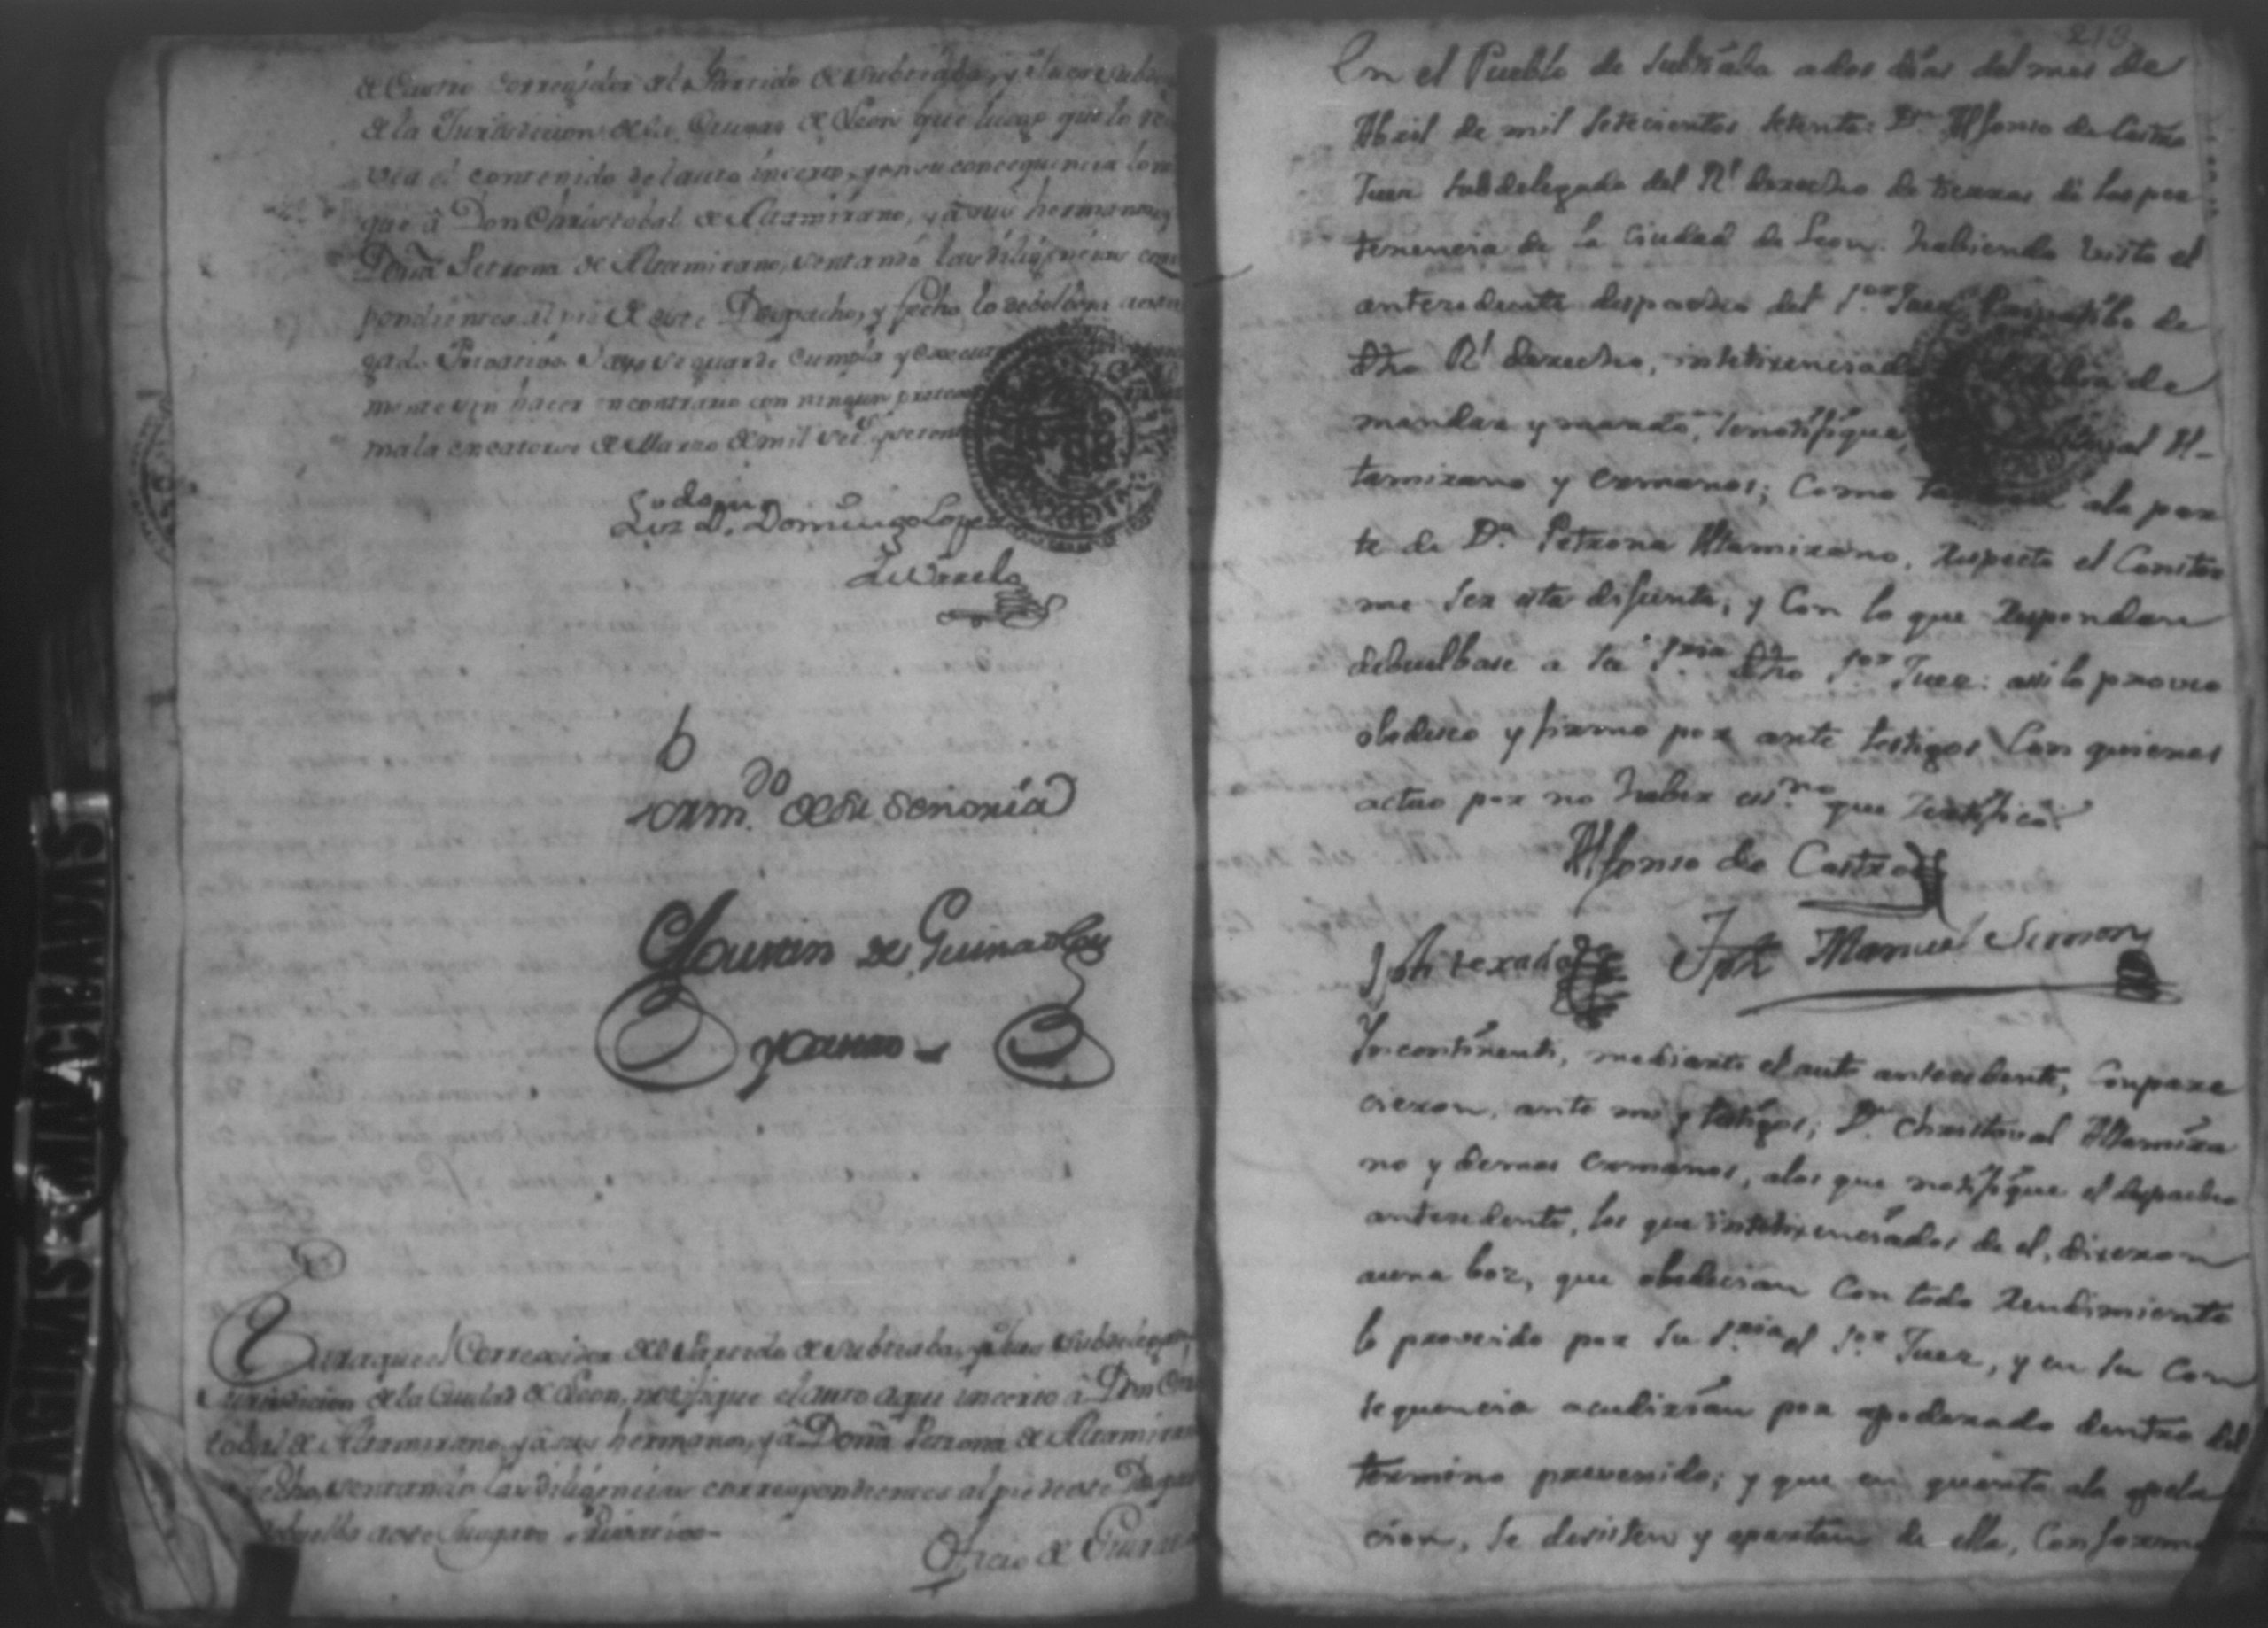 de Castro Corregidor del Partido de Subtiaba, y
de la Jurisdiccion de la Ciudad de Leon que luego que lo
vea el contenido del auto incerto, y en su consequencia
que â Don Christobal de Altamirano, y â sus hermanos, y
Doña Petrona de Altamirano, sentando las diligencias
pondientes al pie de este Despacho, y fecho lo debolbera
gado Privativo. Y assi se guarde cumpla y
mente sin hacer en contrario con ningun
mala en catorce de Marzo de mil
Domingo Lopez
Urruelo
Por
mdo de su Señoria
de Guirao
Para que el Corregidor del Partido de Subtiaba, y Juez Subdelegado
Jurisdiccion de la Ciudad de Leon, notifique el auto aqui incerto â Don
tobal de Altamirano, y â sus hermanos, y â Doña Petrona de Altamirano
fecho, sentando las diligencias correspondientes al pie de este
debuelba a este Juzgado Privativo
Oficio de
213
En el Pueblo de Subtiaba a dos dias del mes de
Abril de mil setecientos setenta: Dn Alfonso de Castro
Juez Subdelegado del Rl derecho de tierras de las per
tenencia de la Ciudad de Leon. habiendo visto el
antesedente despacho del Sor Juez Pribatibo de
dho Rl derecho, intelixenciado de
mandar y mandó, se notifique, al Al-
tamirano y ermanos; Como a la par
te de Da Petrona Altamirano, respecto el Constar
me ser esta difunta; y Con lo que respondan
debuelbase a su Sria dho Sor Juez: asi lo proveo
obedesco y firmo por ante testigos Con quienes
actuo por no haber essno que Sertifico.
Alfonso de Castro
Jph texada
Jph Manuel Simon
Yncontinenti, mediante el auto antesedente, Conpare
cieron, ante mi y testigos; Dn Christoval Altamira
no y demas ermanos, a los que notifique el despacho
antesedente, los que intelixenciados de el, dixeron
a una boz, que obedecian Con todo rendimiento
lo proveido por su Sria el Sor Juez, y en su Con
sequencia acudirian por apoderado dentro del
termino prevenido; y que en quanto a la apela
cion, se desisten y apartan de ella, Conforma